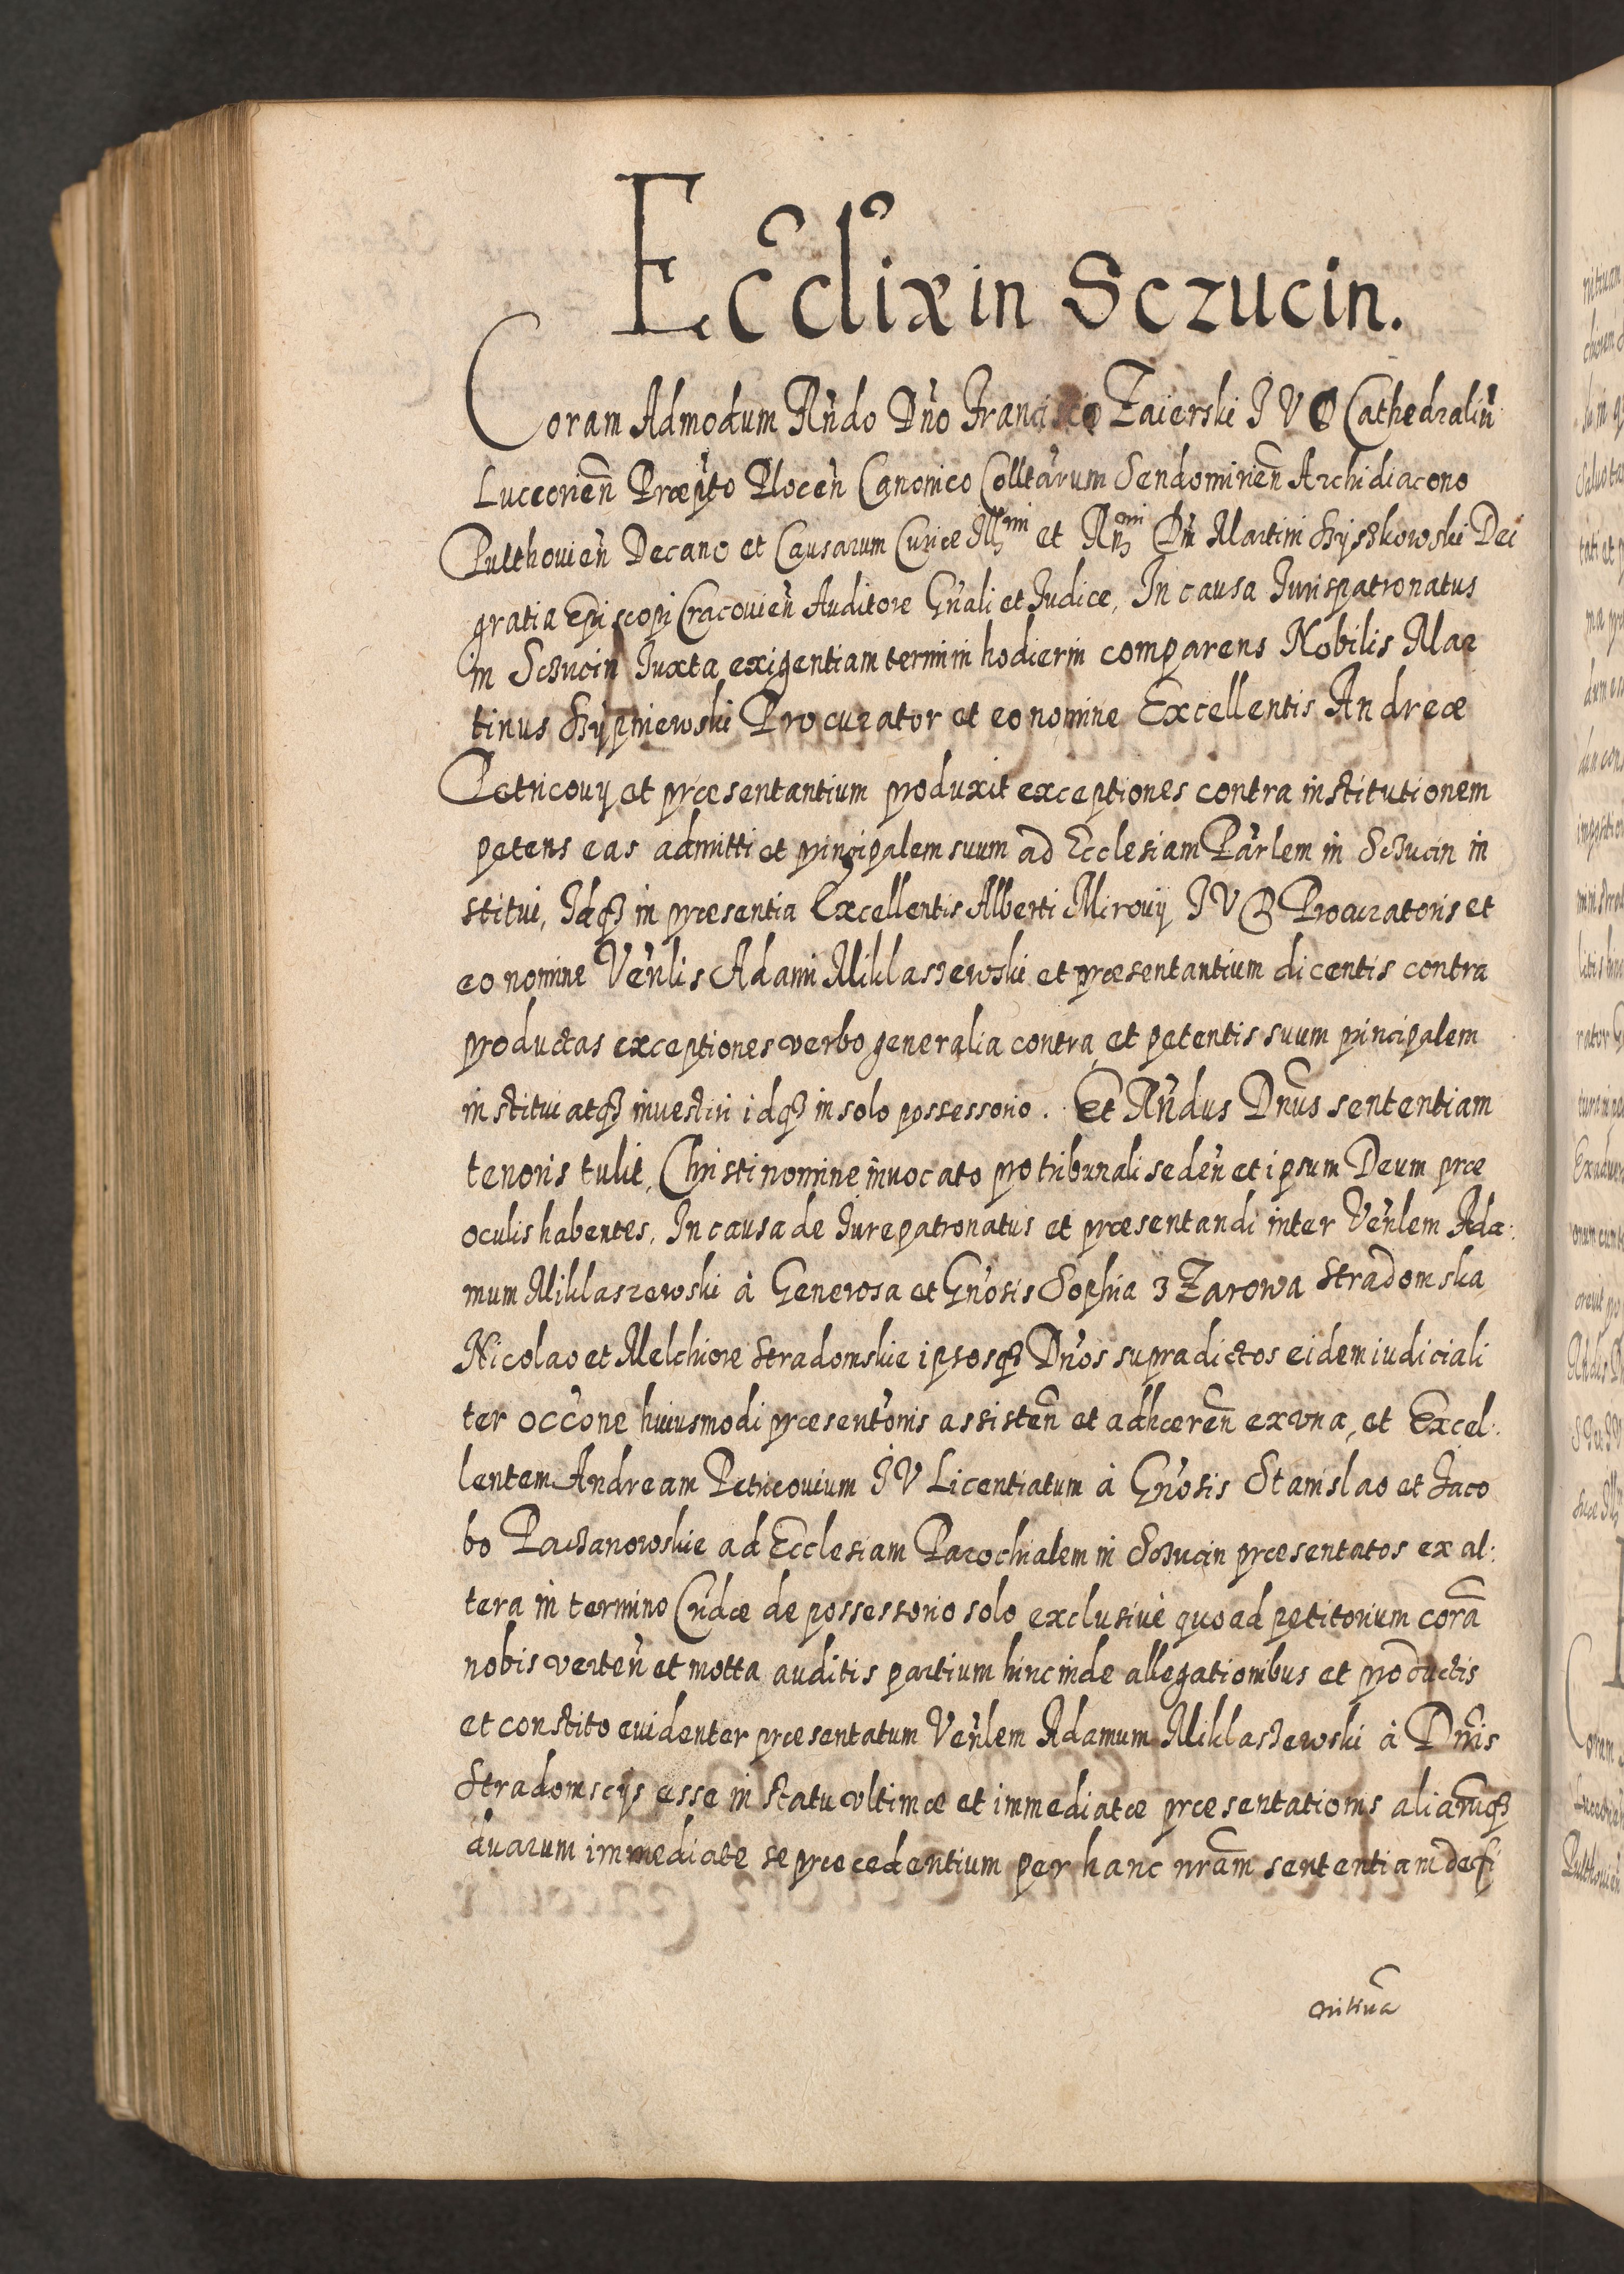 Eccliæ in Sczucin.
Coram Admodum Rn̄do Dn̄o Francisco Zaierski I V D Cathedraliū
Luceorien̄ Præpto Plocen̄ Canonico Colltarum Sendomirien̄ Archidiacono
Pulthovien̄ Decano et Causarum Curiæ Illmi et Rmi Dn̄i Martini Szyszkowski Dei
gratia Episcopi Cracovien̄ Auditore Gn̄ali et Judice, In causa Jurispatronatus
in Sczucin Juxta exigentiam termini hodierni comparens Nobilis Mar
tinus Szypniewski Procurator et eo nomine Excellentis Andreæ
Petricovij et præsentantium produxit exceptiones contra institutionem
petens eas admitti et principalem suum ad Ecclesiam Parlem in Sczucin in
stitui, Idqȝ in præsentia Excellentis Alberti Mirovij I V D Procuratoris et
eo nomine Ven̄lis Adami Miklaszewski et præsentantium dicentis contra
productas exceptiones verbo generalia contra et petentis suum principalem
institui atqȝ investiri idqȝ in solo possessorio. Et Rn̄dus Dn̄us sententiam
tenoris tulit, Christi nomine invocato pro tribunali seden̄ et ipsum Deum præ
oculis habentes, In causa de Jurepatronatus et præsentandi inter Ven̄lem Ada:
mum Miklaszewski à Generosa et Gn̄osis Sophia z Zarowa Stradomska
Nicolao et Melchiore Stradomskie ipsosqȝ Dn̄os supradictos eidem iudiciali
ter occōne huiusmodi præsentōnis assisten̄ et adhæren̄ ex vna, et Excel:
lentem Andream Petricovium I V Licentiatum à Gn̄osis Stanislao et Jaco
bo Paczanowskie ad Ecclesiam Parochialem in Sczucin præsentatos ex al:
tera in termino Cn̄dæ de possessorio solo exclusive quoad petitorium corā
nobis verten̄ et motta auditis partium hinc inde allegationibus et productis
et constito evidenter præsentatum Ven̄lem Adamum Miklaszewski à Dn̄is
Stradomscijs esse in statu vltimæ et immediatæ præsentationis aliarūqȝ
duarum immediate se præcedentium per hanc nr̄am sententiam defi
nitiuā